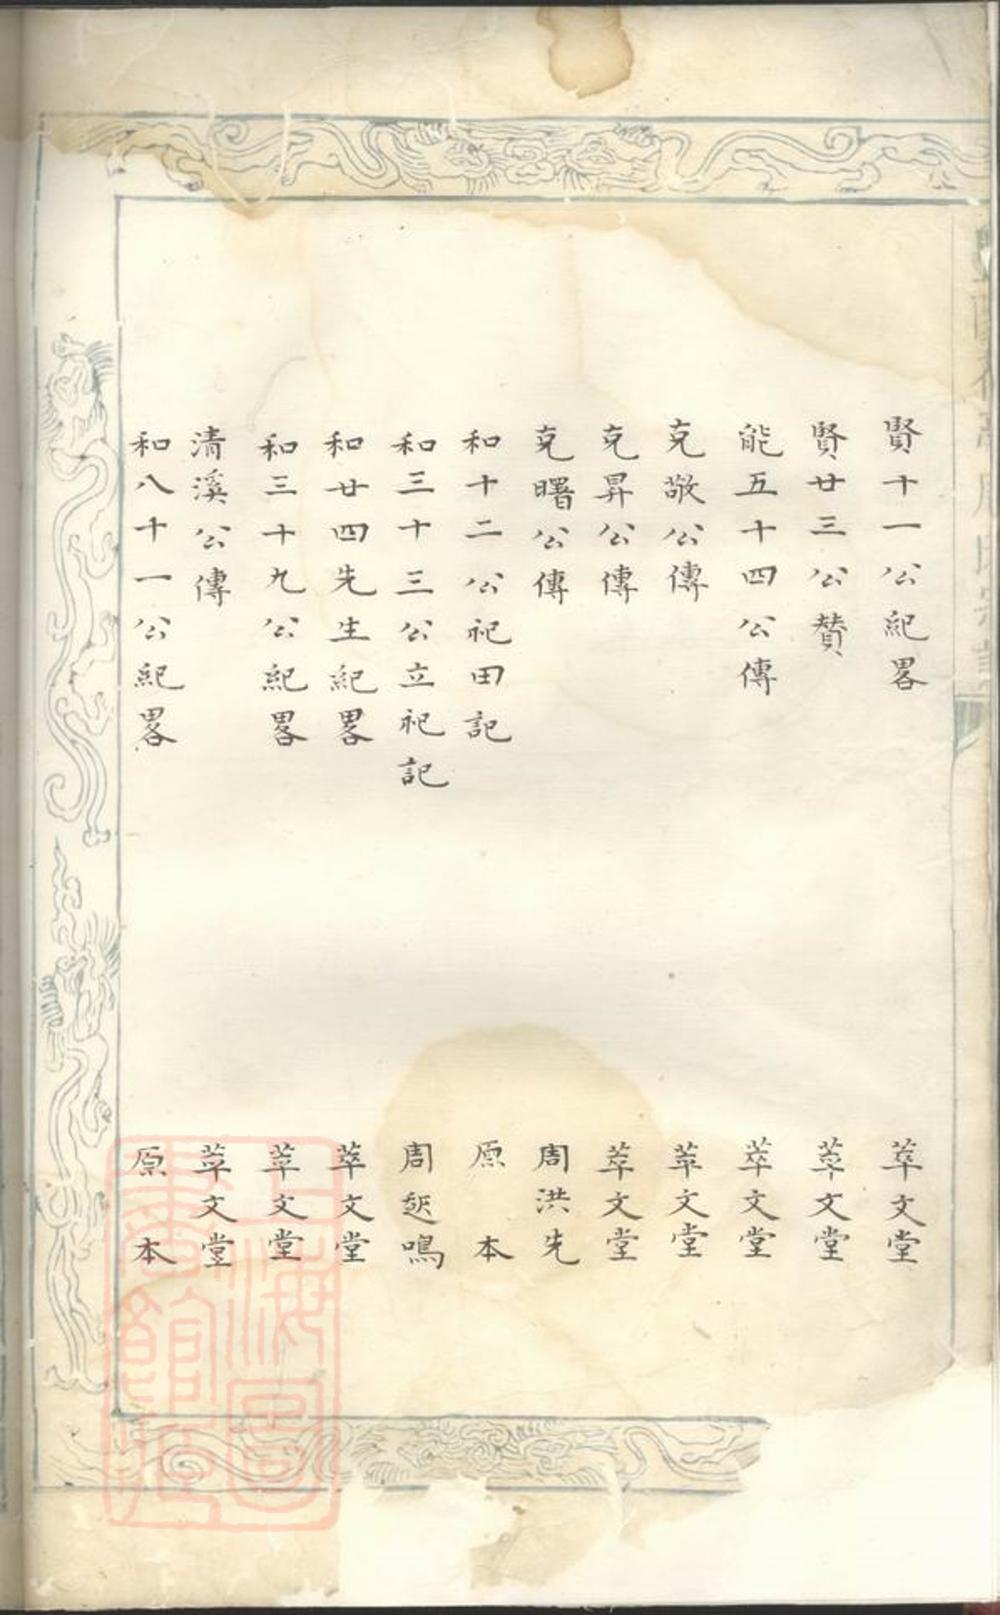 賢十一公紀畧 萃文堂
賢廿三公贊 萃文堂
能五十四公傳 萃文堂
克敬公傳 萃文堂
克昇公傳 萃文堂
克曙公傳 周洪先
和十二公祀田記 原本
和三十三公立祀記 周鳴
和廿四先生紀畧 萃文堂
和三十九公紀畧 萃文堂
清溪公傳 萃文堂
和八十一公紀畧 原本
上海圖書館藏